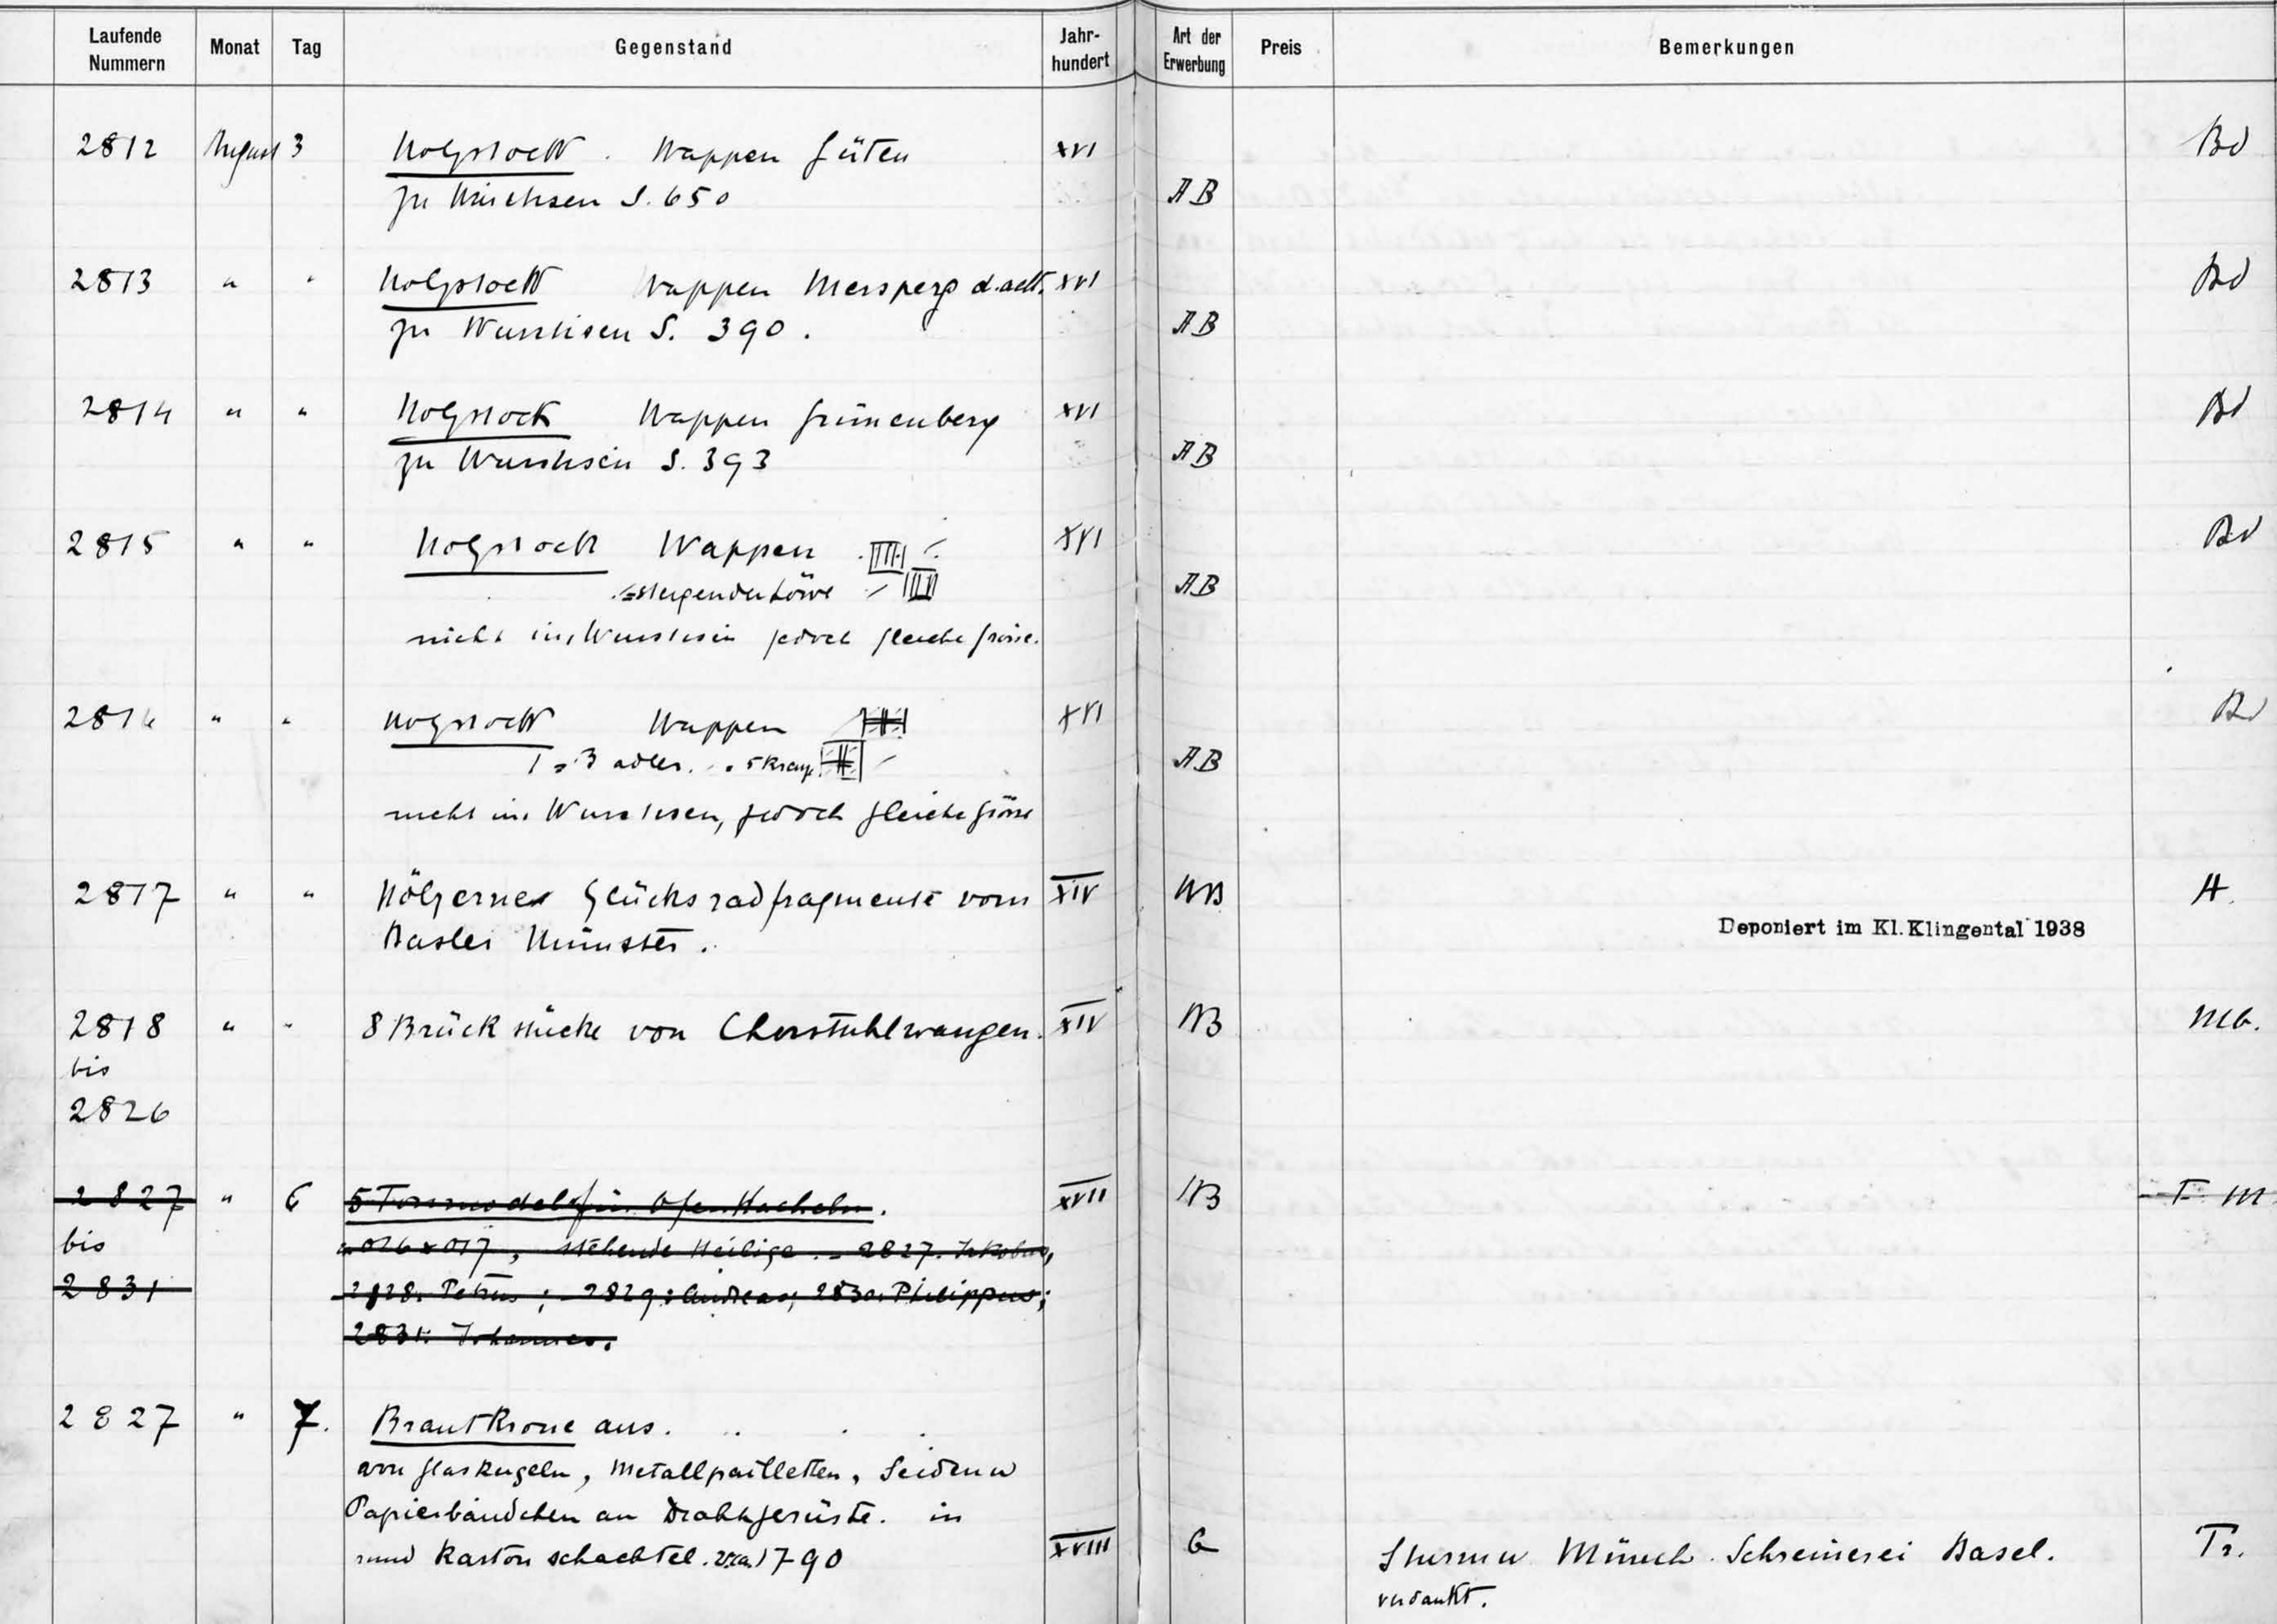 Laufende Nummern Monat Tag Gegenstand Jahr-hundert Art der Erwerbung Preis Bemerkungen
2812 August 3 Holzstock. Wappen XVI Bd
zu S. 650 AB
2813 " " Holzstock Wappen Mersperg d. aelt. XVI Bd
zu Wurstisen S. 390. AB
2814 " " Holzstock Wappen Grünenberg XVI Bd
zu Wurstisen S. 393 AB
2815 " " Holzstock Wappen XVI Bd
= steigender Löwe AB
nicht im Wurstisen jedoch gleiche Grösse.
2816 " " Holzstock Wappen XVI Bd
1 = 3 adler. AB
nicht im Wurstisen, jedoch gleiche Grösse
2817 " " Hölzernes Glücksradfragmente vom XIV H.
Basler Münster. Deponiert im Kl. Klingental 1938
2818 " " 8 Brückstücke von Chorstuhlwangen. XIV AB Mb.
bis
2826
2827 " 6 5 Tonmodel für Ofen Kacheln. XVII AB F M
bis 016 x 017, stehende Heilige. - 2827. Jakobus,
2831 2828. Petrus; 2829: Andreas; 2830: Philippus;
2831: Johannes.
2827 " 7. Brautkrone aus.
von Glaskugeln, Metallpailletten, Seiden u
Papierbändchen an Drahtgerüste. in
rund Kartonschachtel. ca. 1790 XVIII G Münch Schreinerei Basel. Tr.
verdankt.